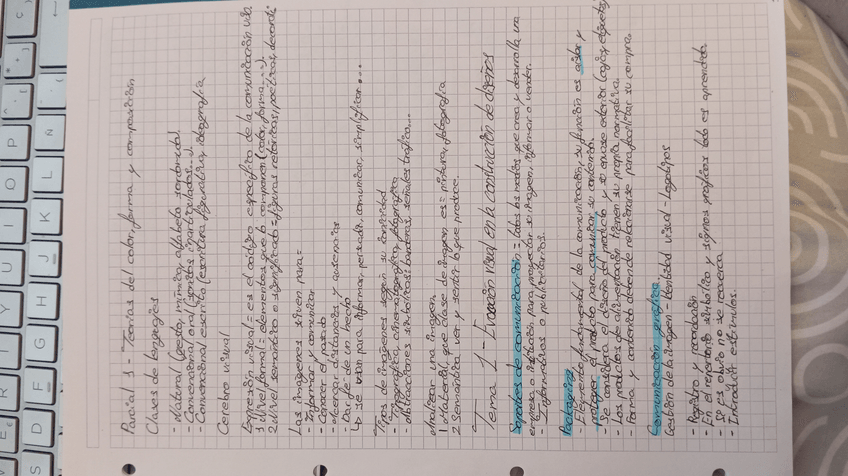 Parcial 1 - Teorías del color, forma y composición
Clases de lenguajes
- Natural (gesto, mímica, alfabeto sordomudo)
- Convencional oral (sonidos inarticulados...)
- Convencional escrita (escritura figurativa, ideografía
Cerebro visual
Expresión visual = es el código específico de la comunicación visual
1 Nivel formal = elementos que lo componen (color, forma...)
2 Nivel semántico o significado = figuras retóricas, poéticas,
Las imágenes sirven para =
- Informar y comunicar
- Conocer el pasado
- distancias y ausencias
- Dar fe de un hecho
↳ se usan para informar, persuadir, comunicar, simplificar...
Tipos de imágenes según su iconicidad
- cinematográfica, fotográfica
- Abstracciones simbólicas: banderas, señales tráfico...
Analizar una imagen
1 Material, que clase de imagen es = pintura, fotografía
2 Semántica ver y sentir lo que produce.
Tema 1 - Evocación visual en la construcción de diseños
Soportes de comunicación = todos los medios que crea y desarrolla una
empresa o institución para proyectar su imagen, informar o vender.
Informativas o publicitarios.
Packaging
- Elemento fundamental de la comunicación, su función es aislar y
proteger el producto para comunicar su contenido.
- Se considera el diseño del producto y su envase exterior (cajas, etiquetas
- Los productos de alimentación tienen su propia normativa.
- Forma y contenido deben de relacionarse para facilitar su compra.
Comunicación gráfica
Gestión de la imagen - Identidad visual - Logotipos
- Registro y
- En el repertorio simbólico y signos gráficos todo es aprendido
- Si es obvio no se recuerda
- Introducir estímulos.
Q
W
E
R
T
Y
U
I
O
P
S
D
F
G
H
J
K
L
Ñ
Ç